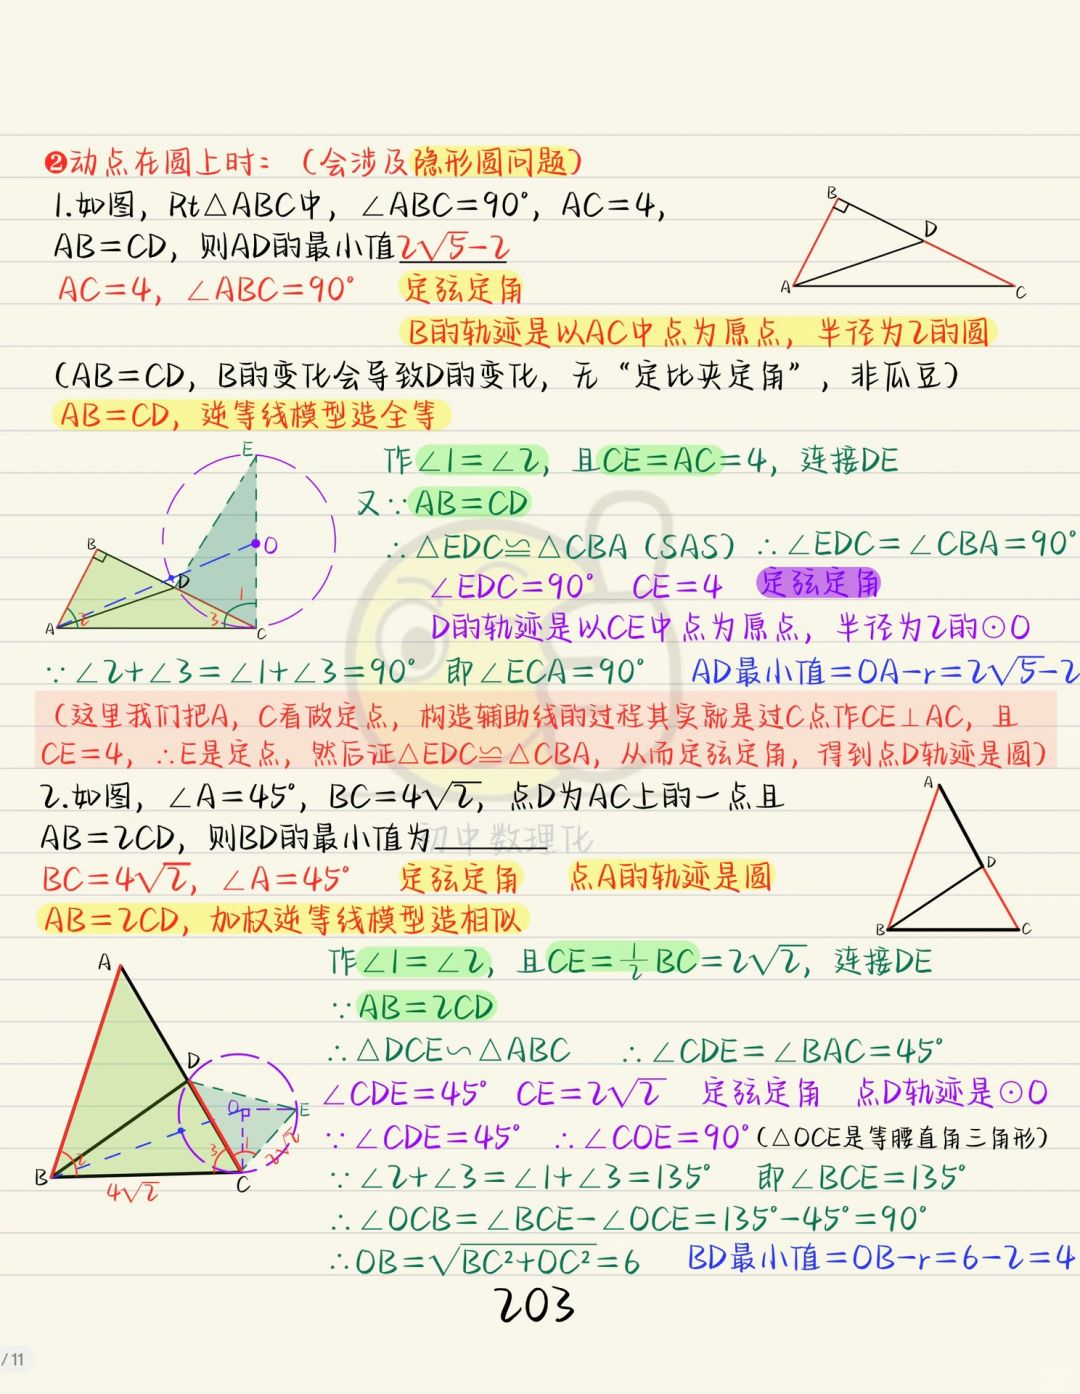 ❷动点在圆上时：（会涉及隐形圆问题）
1.如图，Rt△ABC中，∠ABC=90°，AC=4，
AB=CD，则AD的最小值2√5-2
AC=4，∠ABC=90° 定弦定角
B的轨迹是以AC中点为原点，半径为2的圆
（AB=CD，B的变化会导致D的变化，无“定比夹定角”，非瓜豆）
AB=CD，逆等线模型造全等
B
D
A
C
作∠1=∠2，且CE=AC=4，连接DE
又∵AB=CD
∴△EDC≌△CBA（SAS）∴∠EDC=∠CBA=90°
∠EDC=90° CE=4 定弦定角
D的轨迹是以CE中点为原点，半径为2的⊙O
E
O
B
D
1
2
3
A
C
∵∠2+∠3=∠1+∠3=90° 即∠ECA=90° AD最小值=OA-r=2√5-2
（这里我们把A，C看做定点，构造辅助线的过程其实就是过C点作CE⊥AC，且
CE=4，∴E是定点，然后证△EDC≌△CBA，从而定弦定角，得到点D轨迹是圆）
2.如图，∠A=45°，BC=4√2，点D为AC上的一点且
AB=2CD，则BD的最小值为
初中数理化
BC=4√2，∠A=45° 定弦定角 点A的轨迹是圆
AB=2CD，加权逆等线模型造相似
A
D
B
C
作∠1=∠2，且CE=1/2BC=2√2，连接DE
∵AB=2CD
∴△DCE∽△ABC ∴∠CDE=∠BAC=45°
∠CDE=45° CE=2√2 定弦定角 点D轨迹是⊙O
∵∠CDE=45° ∴∠COE=90°（△OCE是等腰直角三角形）
∵∠2+∠3=∠1+∠3=135° 即∠BCE=135°
∴∠OCB=∠BCE-∠OCE=135°-45°=90°
∴OB=√BC²+OC²=6 BD最小值=OB-r=6-2=4
A
D
O
E
2
3
1
2√2
B
4√2
C
203
/ 11